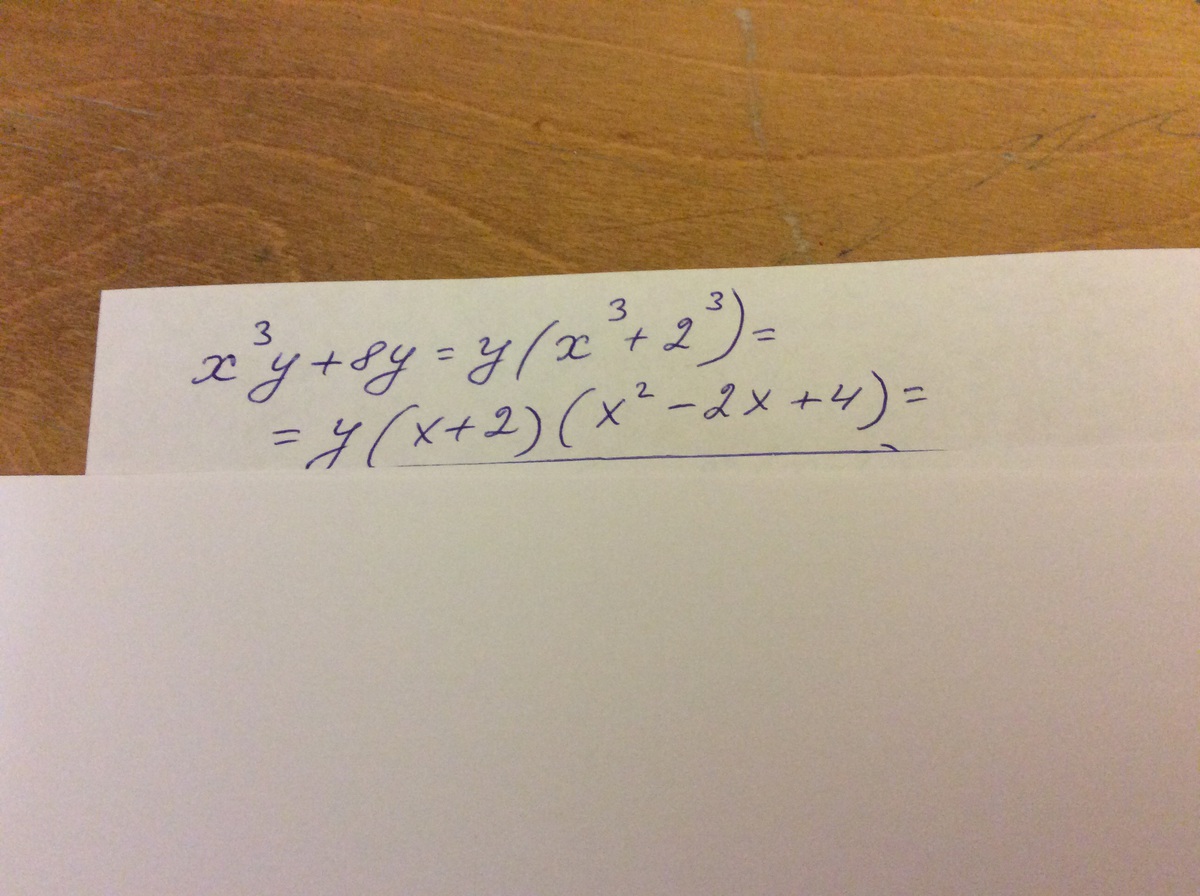 x³y + 8y = y(x³ + 2³) =
= y(x+2)(x² - 2x + 4) =